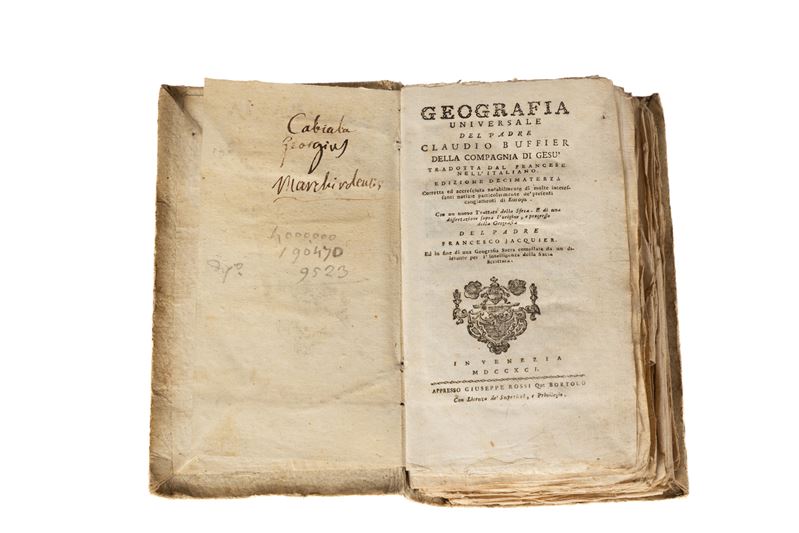 Cabiala
Georgius
Marchirolensis
4000000
190470
9523
GEOGRAFIA
UNIVERSALE
DEL PADRE
CLAUDIO BUFFIER
DELLA COMPAGNIA DI GESU'
TRADOTTA DAL FRANCESE
NELL'ITALIANO.
EDIZIONE DECIMATERZA
Corretta ed accresciuta notabilmente di molte interes-
santi notizie particolarmente de' presenti
cangiamenti di Europa.
Con un nuovo Trattato della Sfera. E di una
dissertazione sopra l'origine, e progresso
della Geografia
DEL PADRE
FRANCESCO JACQUIER.
Ed in fine di una Geografia Sacra consultata da un di-
lettante per l'intelligenza della Sacra
Scrittura.
IN VENEZIA
MDCCXCI.
APPRESSO GIUSEPPE ROSSI Qm: BORTOLO
Con Licenza de' Superiori, e Privilegio.